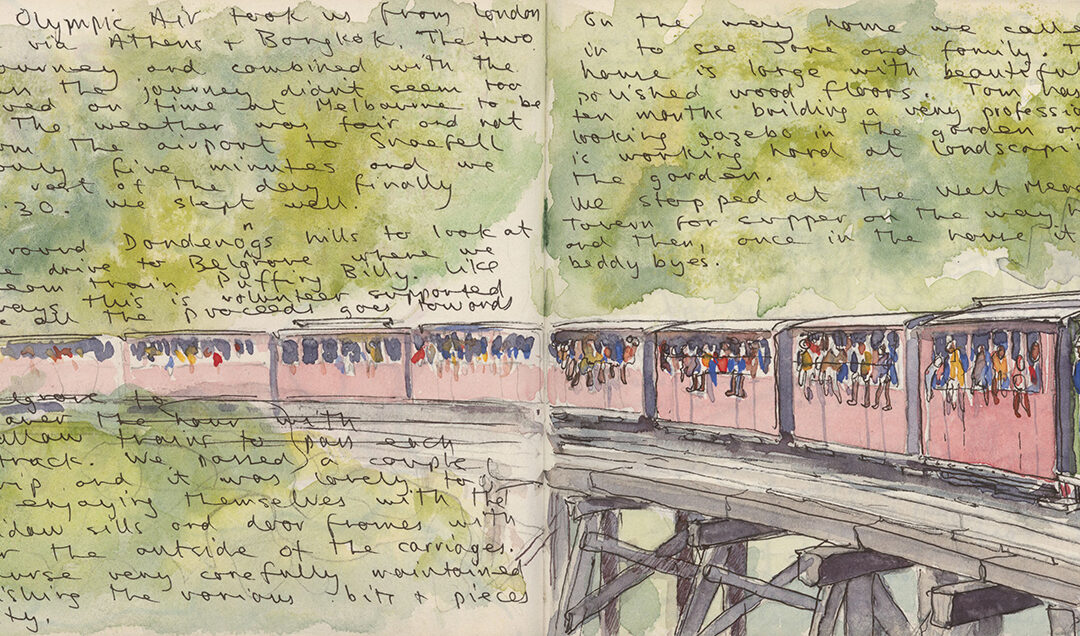 Olympic Air took us from London
via Athens + Bangkok. The two
journey and combined with the
the journey didn't seem too
ved on time at Melbourne to be
The weather was fair and not
om the airport to Snaefell
only five minutes and we
rest of the day finally
.30. We slept well.
round Dandenongs hills to look at
e drive to Belgrave where we
eam train Puffing Billy. Like
ways this is volunteer supported
e all the proceeds goes towards
lgrave to
aver the hour with
allow trains to pass each
track. We passed a couple
rip and it was lovely to
enjoying themselves with the
dow sills and door frames with
r the outside of the carriages.
urse very carefully maintained
ishing the various bitt + pieces
ty.
On the way home we calle
in to see Jane and family. T
house is large with beautiful
polished wood floors. Tom has
ten months building a very professio
looking gazebo in the garden an
is working hard at landscapin
the garden.
We stopped at the West Mere
Tavern for supper on the way h
and then, once in the house it
beddy byes.